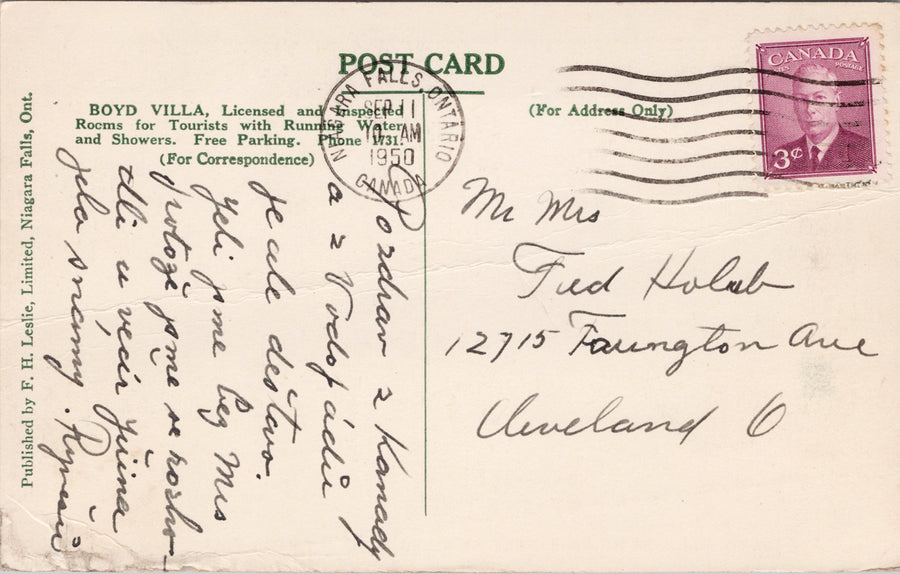 POST CARD
BOYD VILLA, Licensed and Inspected
Rooms for Tourists with Running Water
and Showers. Free Parking. Phone 1731.
(For Correspondence)
(For Address Only)
NIAGARA FALLS, ONTARIO
SEP 11
AM
1950
CANADA
CANADA
POSTES POSTAGE
3¢
Pozdrav z Kanady
a z Vodopádu
je ale deštivo.
Jeli jsme bez Mrs
protože jsme se rozho-
dli u večír jinna
jela smenny.
Mr Mrs
Fred Holub
12715 Farington Ave
Cleveland O
Published by F. H. Leslie, Limited, Niagara Falls, Ont.